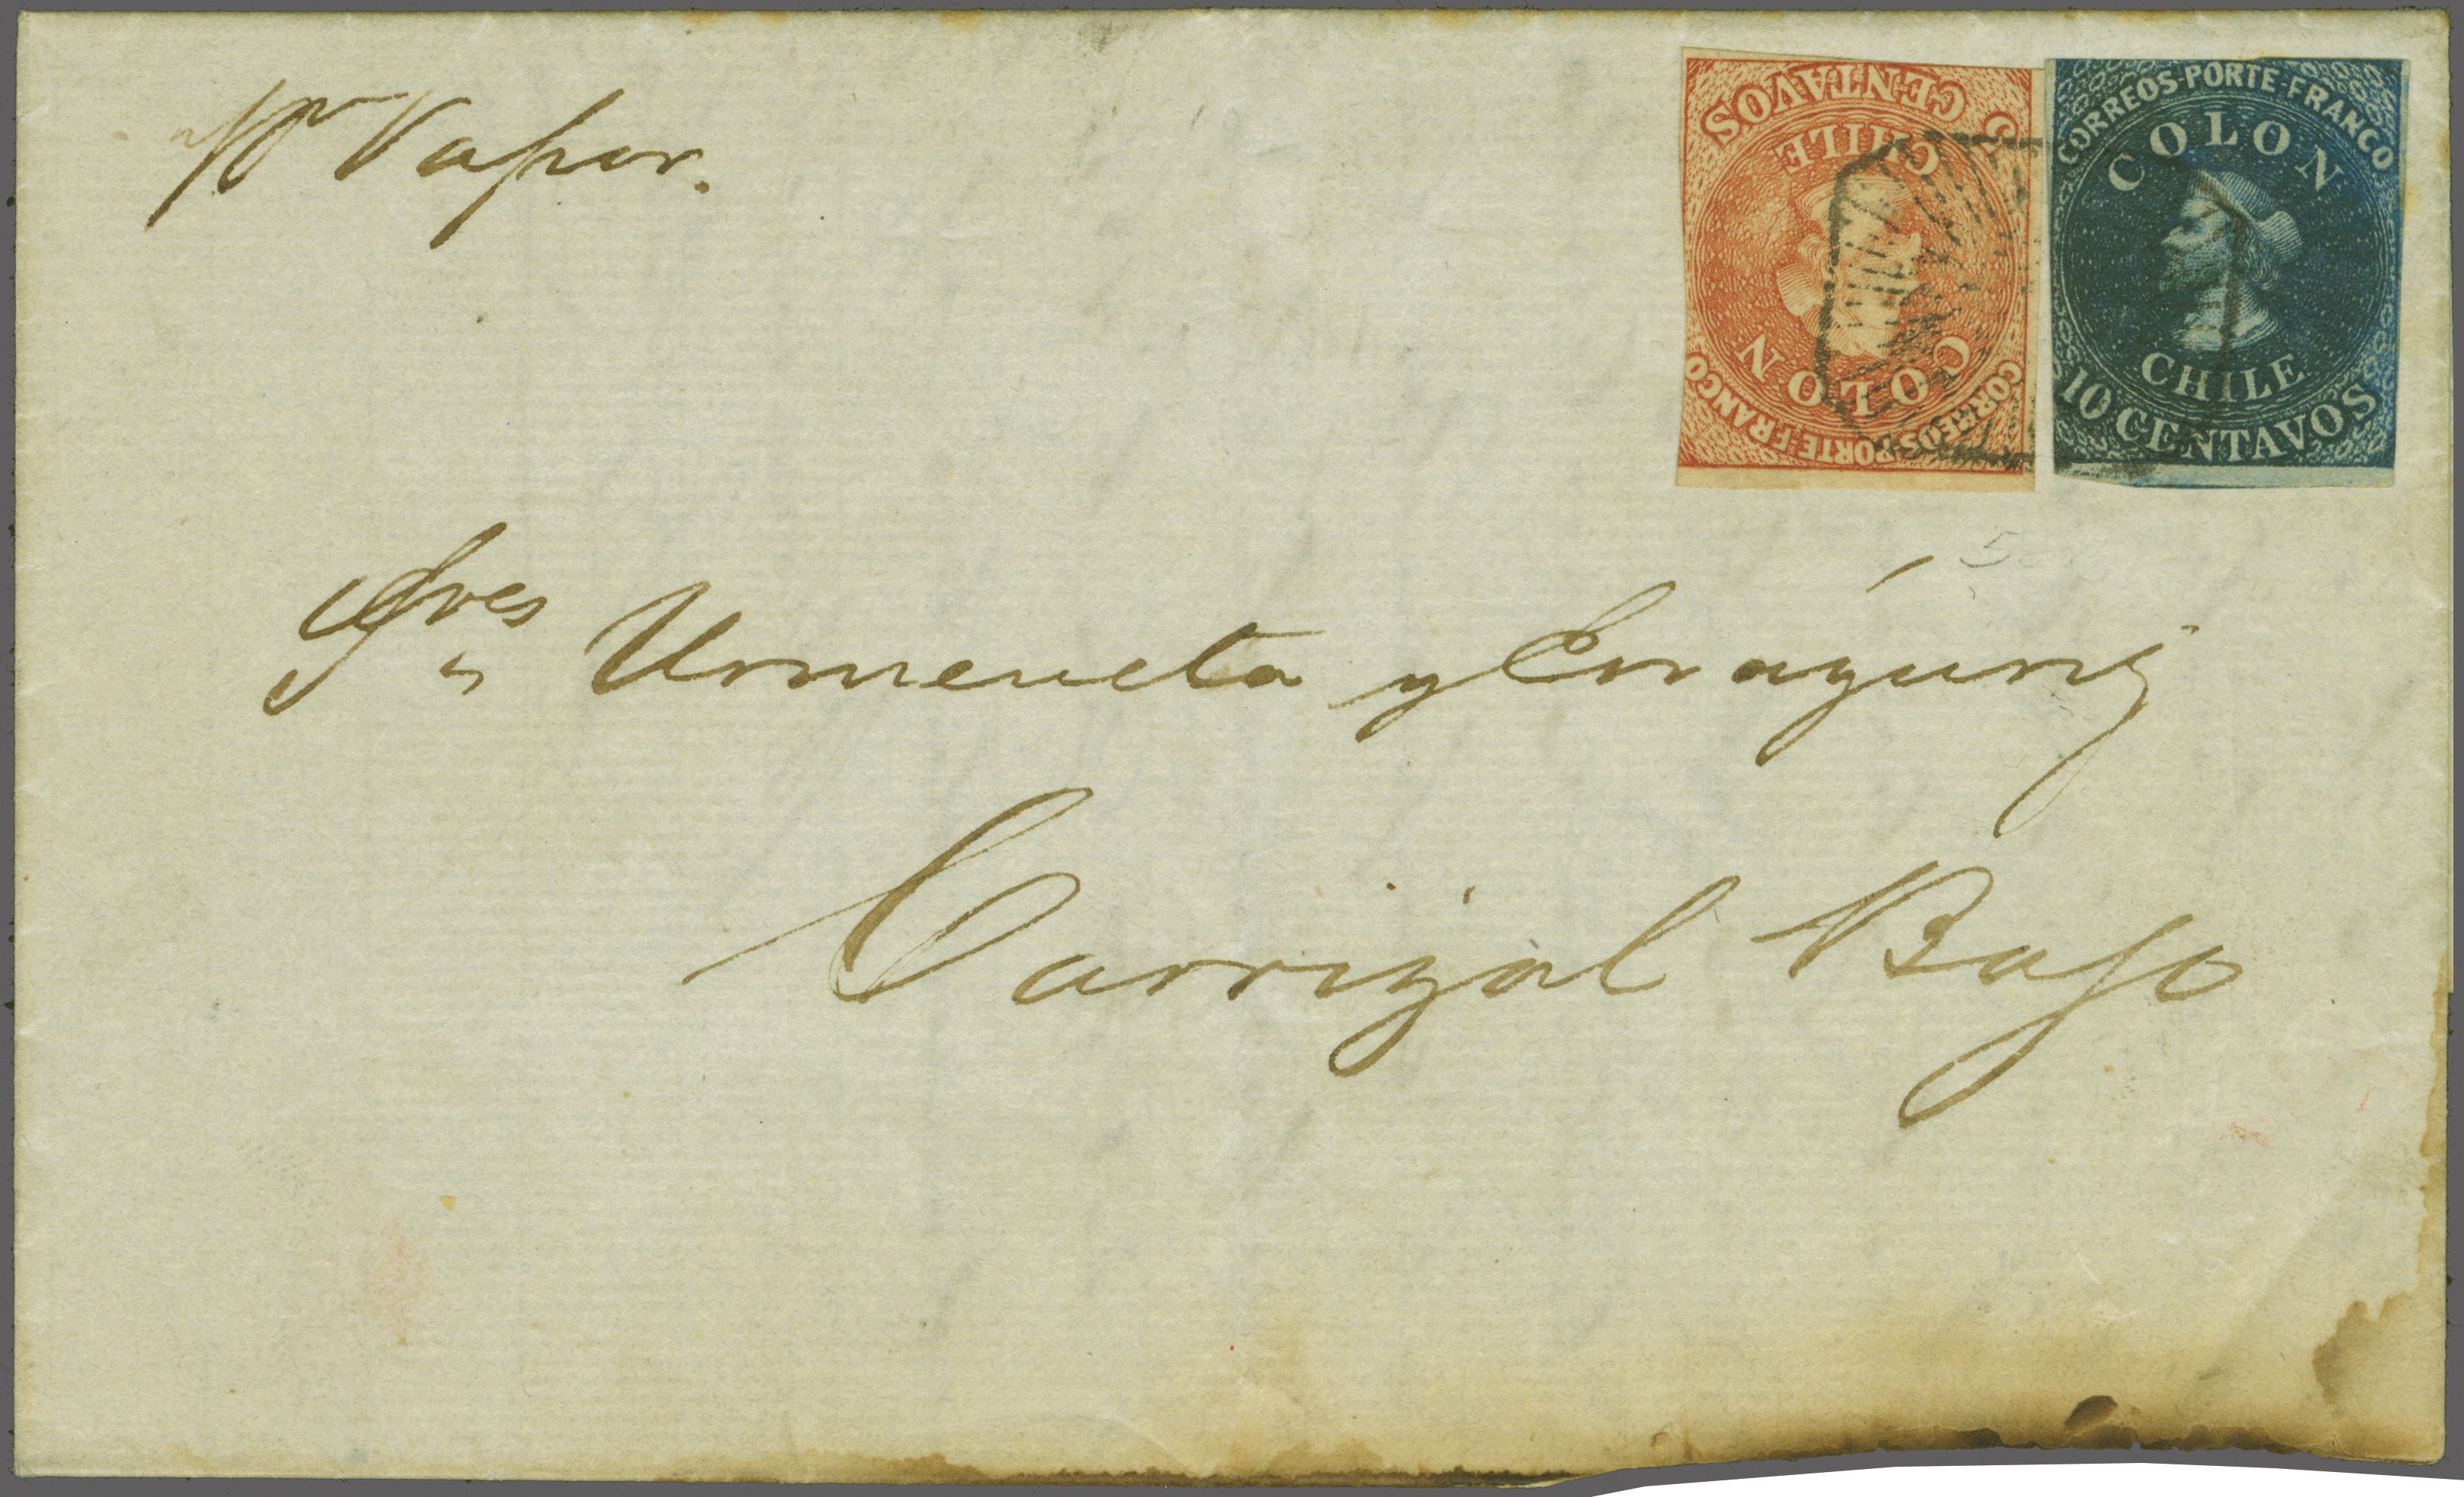 pr Vapor.
CORREOS-PORTE-FRANCO
COLON
CHILE
5 CENTAVOS
CORREOS-PORTE-FRANCO
COLON
CHILE
10 CENTAVOS
Sres Urmeneta y Errázuriz
Carrizal Bajo